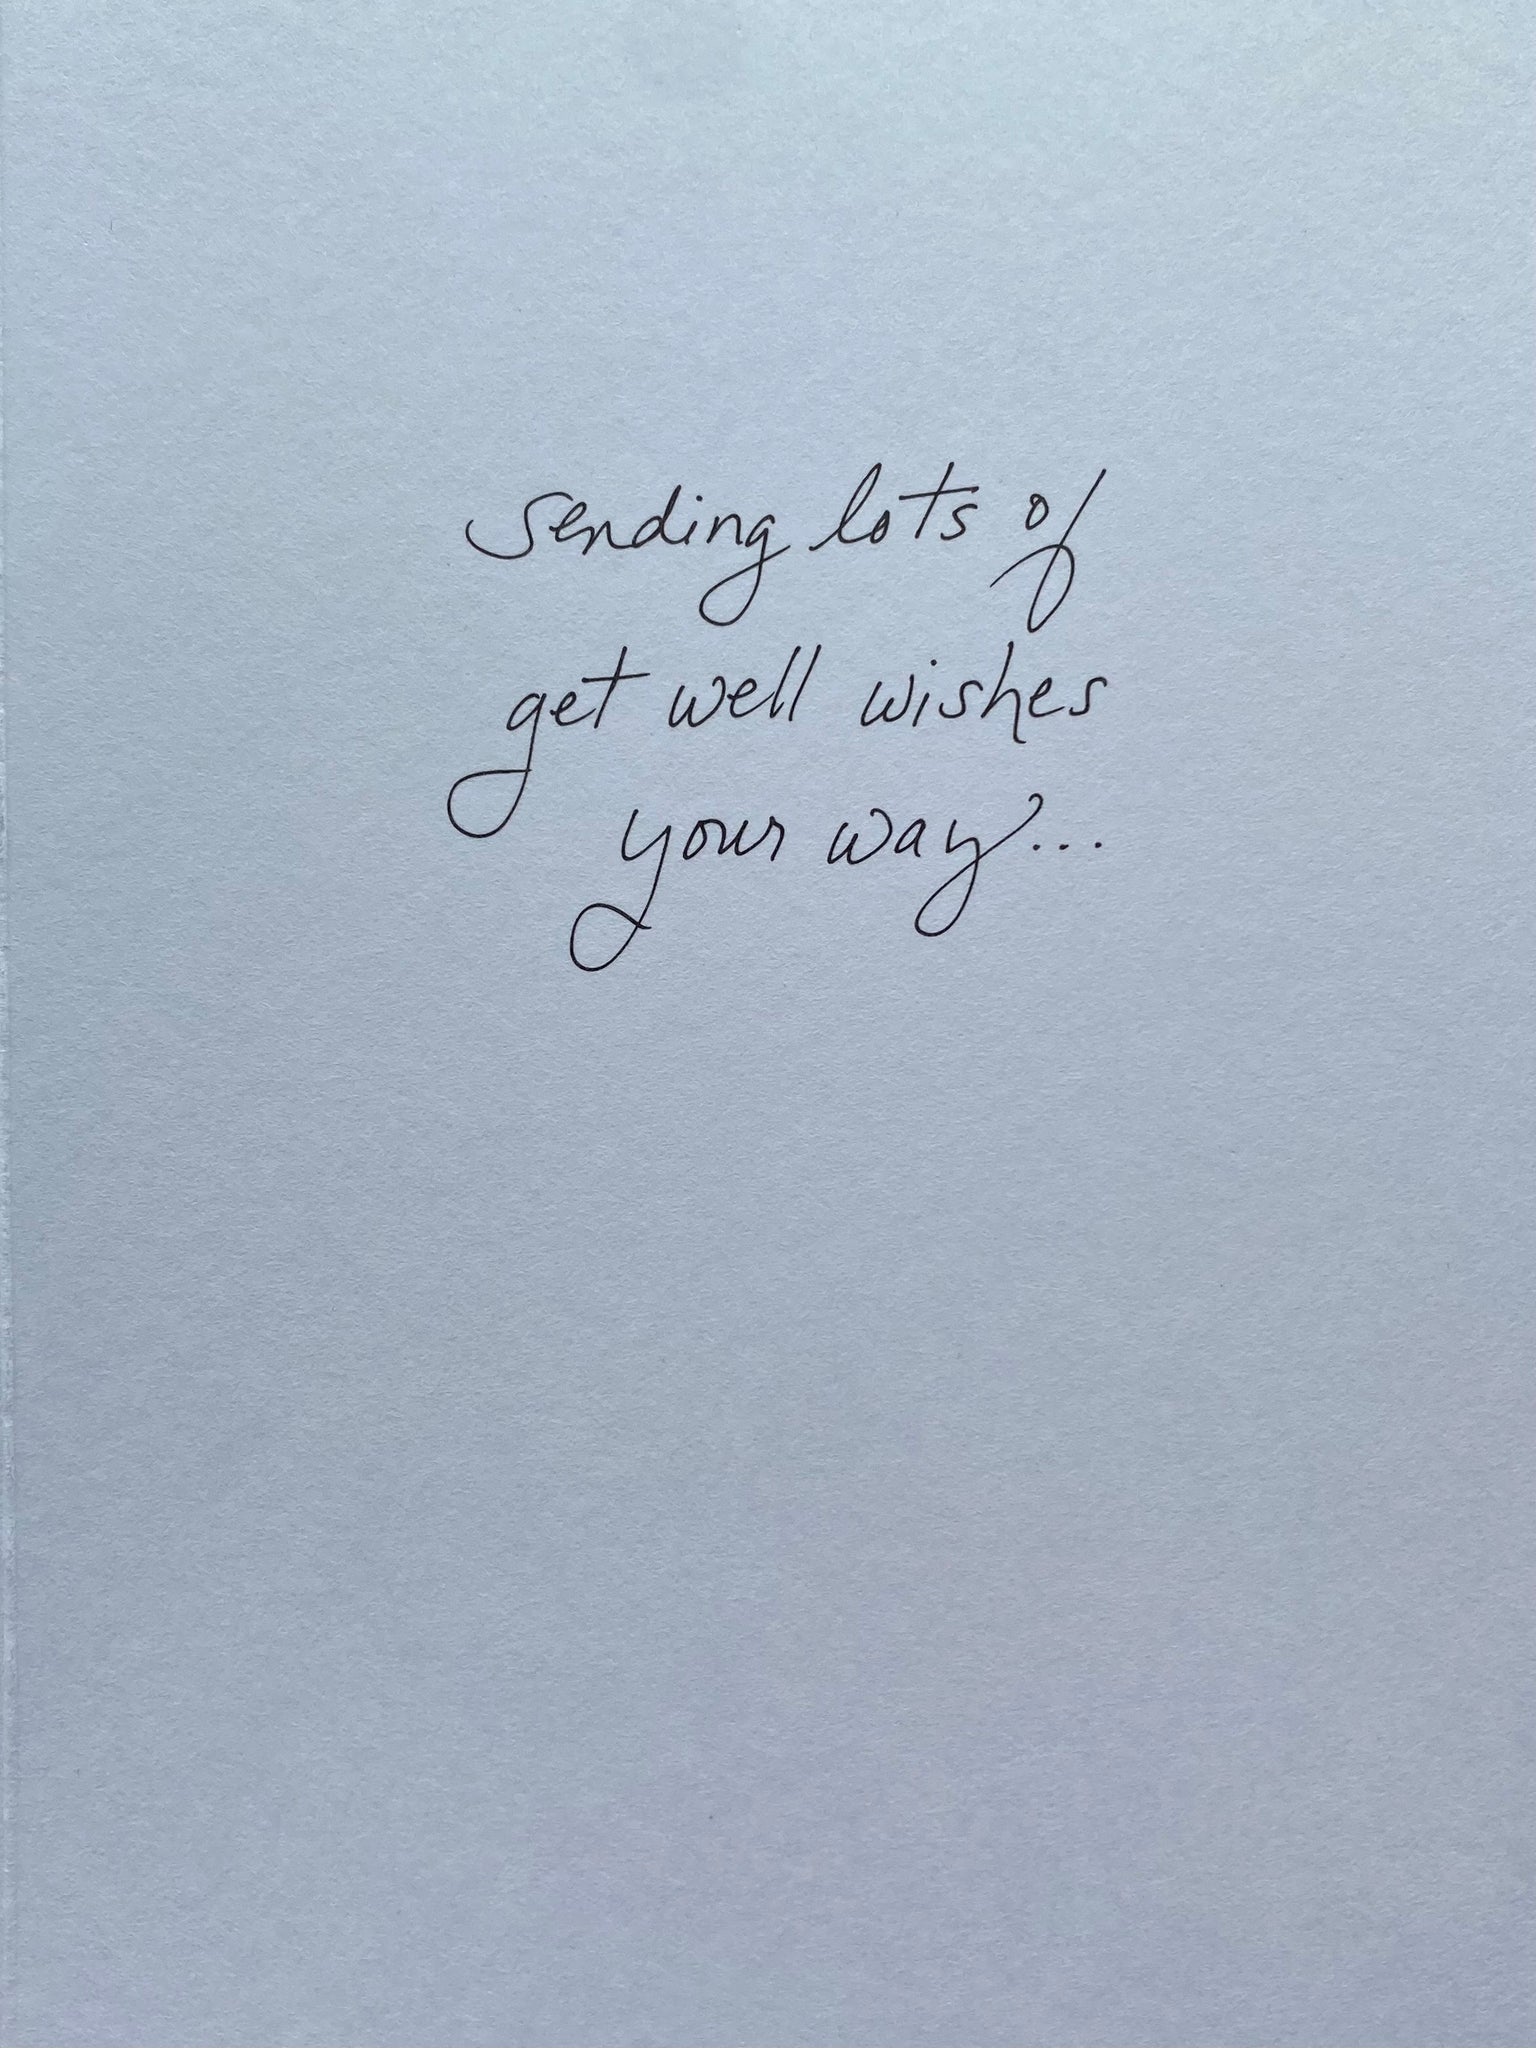 sending lots of
get well wishes
your way...